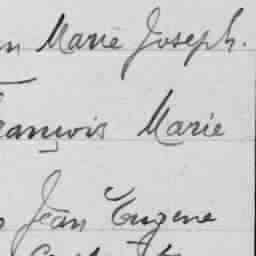 Marie Joseph.
François Marie
Jean Eugene